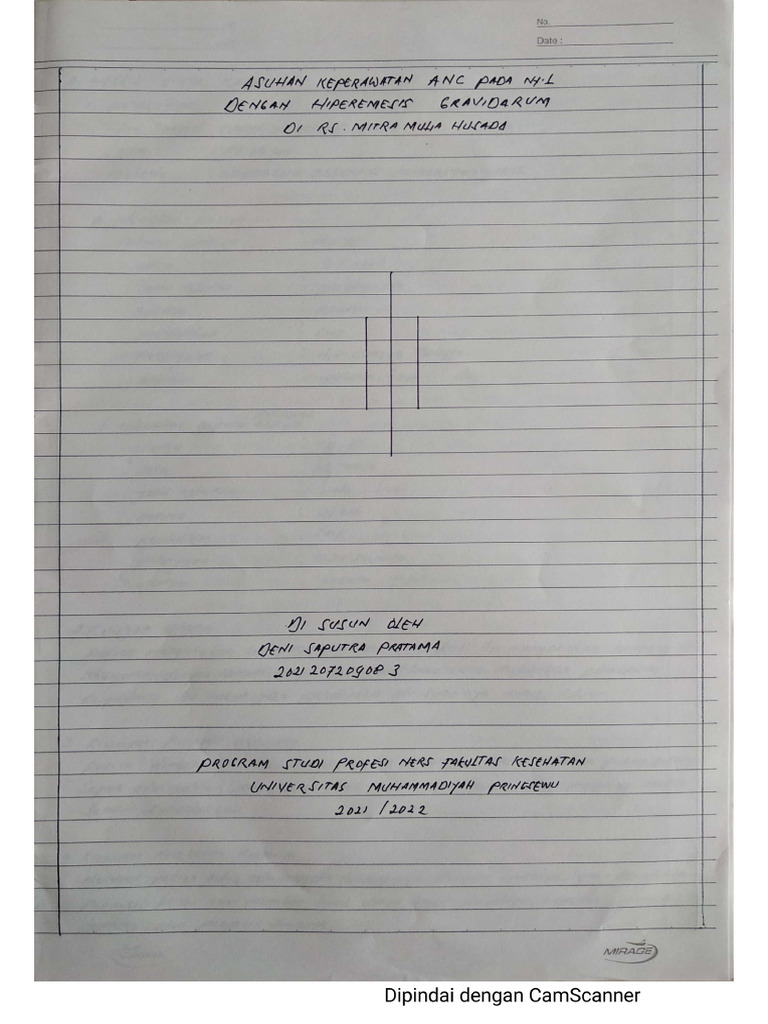 No.
Date :
ASUHAN KEPERAWATAN ANC PADA NY.L
DENGAN HIPEREMESIS GRAVIDARUM
DI RS. MITRA MULIA HUSADA
DI SUSUN OLEH
DENI SAPUTRA PRATAMA
2021 2072090 8 3
PROGRAM STUDI PROFESI NERS FAKULTAS KESEHATAN
UNIVERSITAS MUHAMMADIYAH PRINGSEWU
2021 / 2022
MIRAGE
Dipindai dengan CamScanner